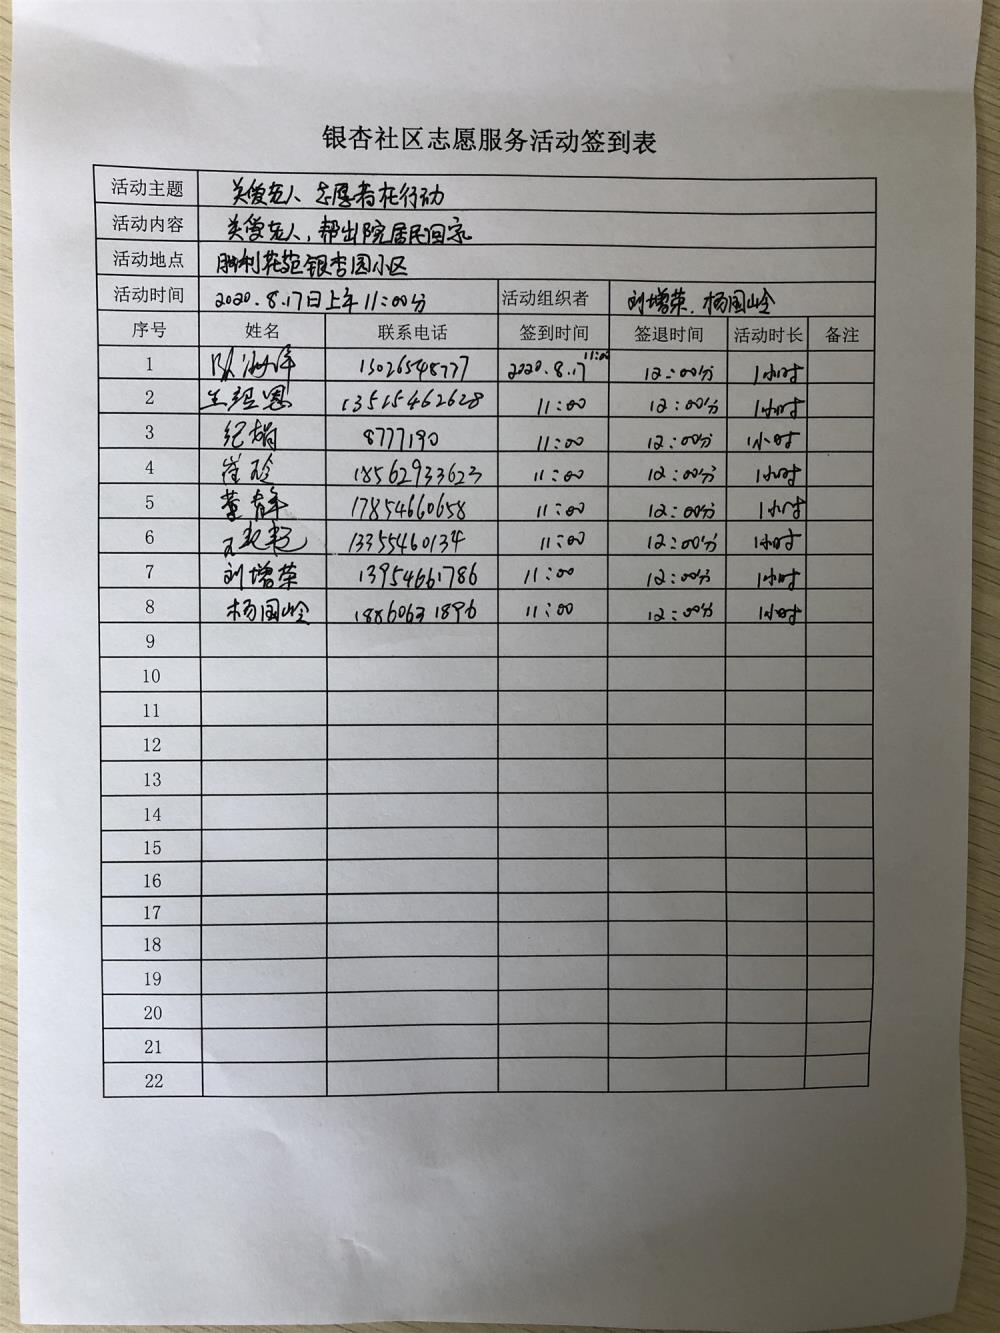 银杏社区志愿服务活动签到表
活动主题 关爱老人 志愿者在行动
活动内容 关爱老人,帮出院居民回家
活动地点 胜利花苑银杏园小区
活动时间 2020.8.17日上午11:00分 活动组织者 刘增荣、杨国岭
序号 姓名 联系电话 签到时间 签退时间 活动时长 备注
1 15026548777 2020.8.17 11:00 12:00分 1小时
2 13515462628 11:00 12:00分 1小时
3 纪娟 8777190 11:00 12:00分 1小时
4 崔玲 18562933623 11:00 12:00分 1小时
5 董静 17854660658 11:00 12:00分 1小时
6 13355460134 11:00 12:00分 1小时
7 刘增荣 13954661786 11:00 12:00分 1小时
8 杨国岭 18860631896 11:00 12:00分 1小时
9
10
11
12
13
14
15
16
17
18
19
20
21
22